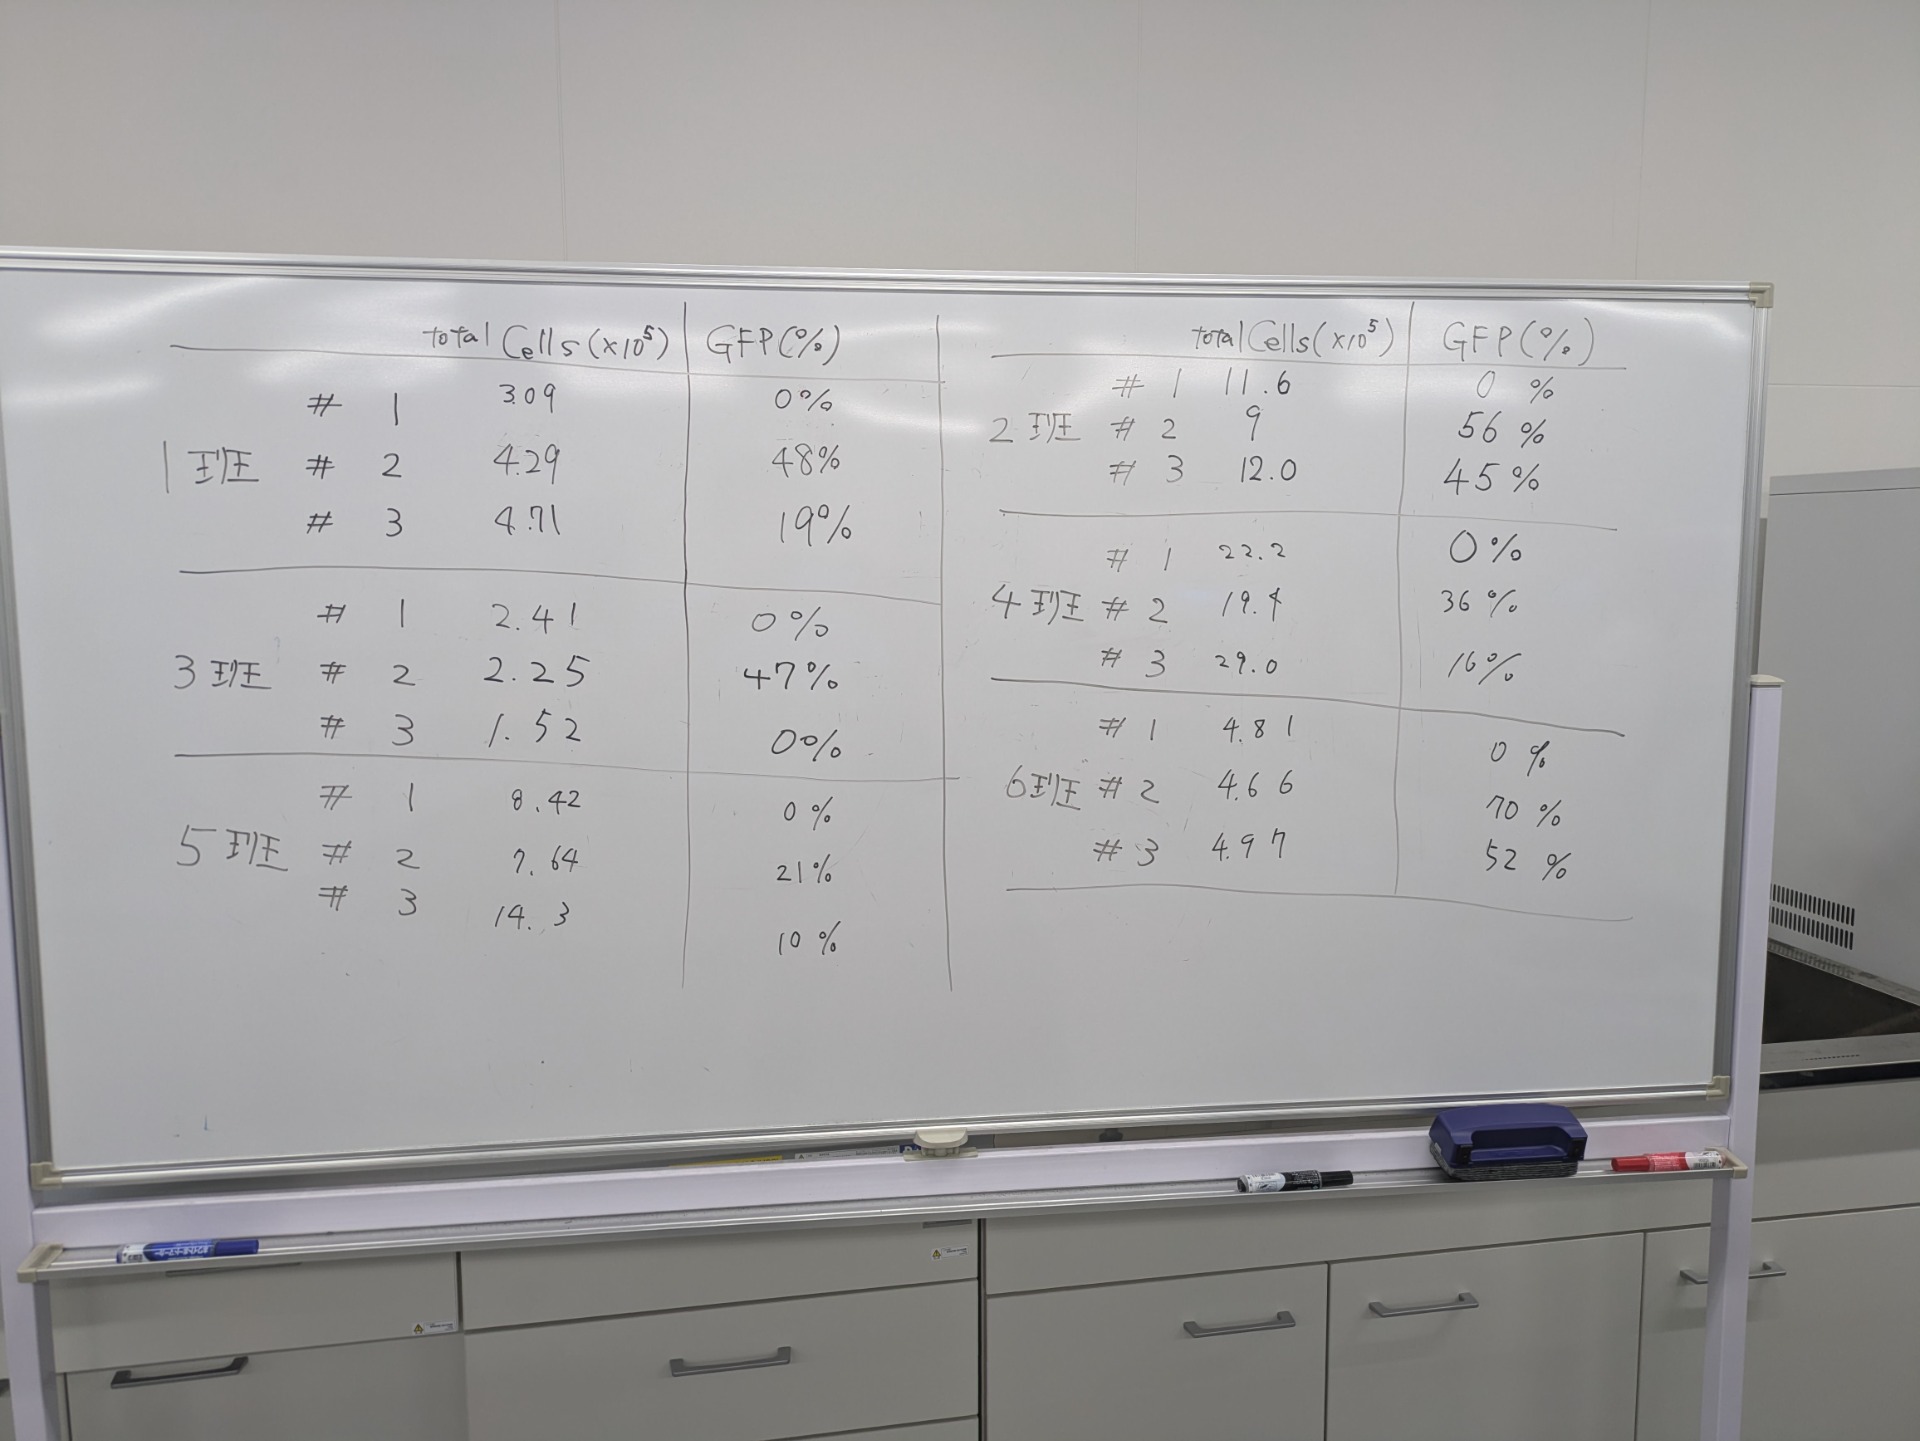 total Cells (×10⁵) GFP(%)
# 1 3.09 0%
1班 # 2 4.29 48%
# 3 4.71 19%
# 1 2.41 0%
3班 # 2 2.25 47%
# 3 1.52 0%
# 1 8.42 0%
5班 # 2 7.64 21%
# 3 14.3 10%
total Cells (×10⁵) GFP(%)
# 1 11.6 0%
2班 # 2 9 56%
# 3 12.0 45%
# 1 22.2 0%
4班 # 2 19.4 36%
# 3 29.0 16%
# 1 4.81 0%
6班 # 2 4.66 70%
# 3 4.97 52%